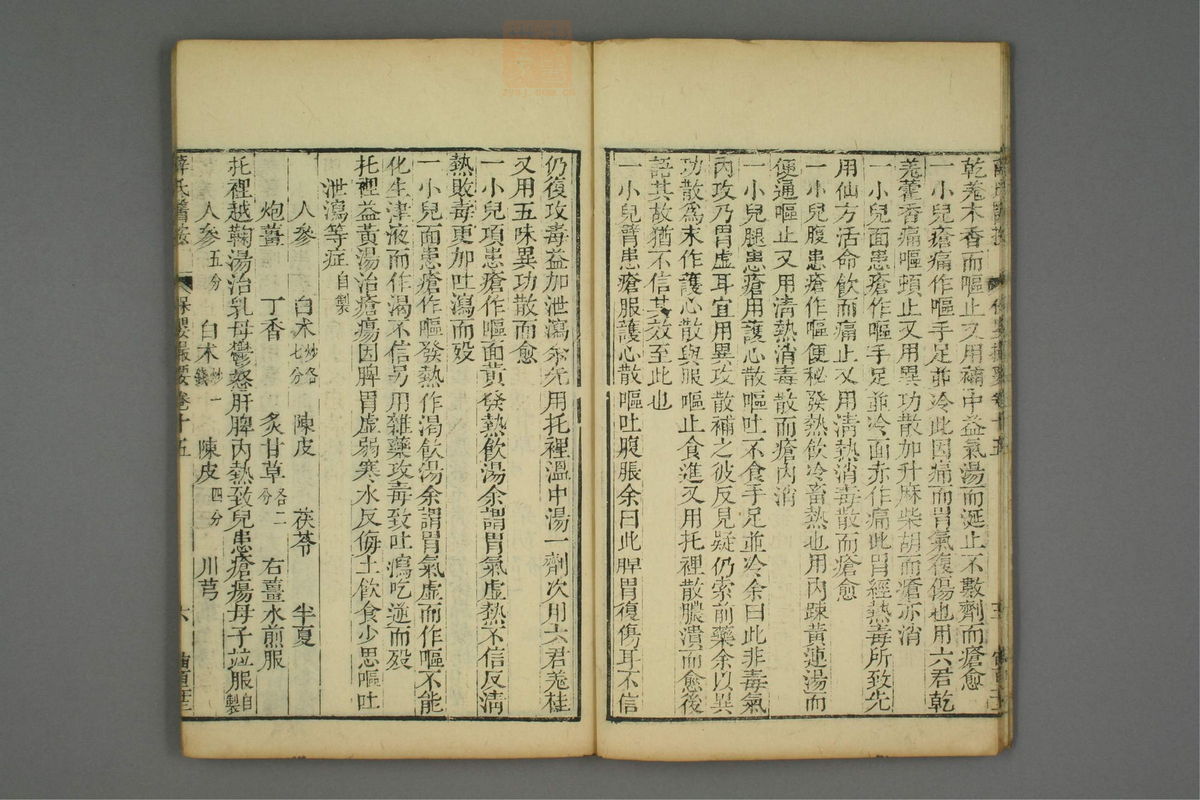 乾羗木香而嘔止又用補中益氣湯而涎止不數劑而瘡愈
一小兒瘡痛作嘔手足並冷此因痛而胃氣復傷也用六君乾
羗藿香痛嘔頓止又用異功散加升麻柴胡而瘡亦消
一小兒面患瘡作嘔手足並冷面赤作痛此胃經熱毒所致先
用仙方活命飲而痛止又用清熱消毒散而瘡愈
一小兒腹患瘡作嘔便秘發熱飲冷畜熱也用內踈黃連湯而
便通嘔止又用清熱消毒散而瘡內消
一小兒腿患瘡用護心散嘔吐不食手足並冷余曰此非毒氣
內攻乃胃虛耳宜用異攻散補之彼反見疑仍索前藥余以異
功散為末作護心散與服嘔止食進又用托裡散膿潰而愈後
語其故猶不信其效至此也
一小兒臂患瘡服護心散嘔吐腹脹余曰此脾胃復傷耳不信
仍復攻毒益加泄瀉余先用托裡溫中湯一劑次用六君羗桂
又用五味異功散而愈
一小兒項患瘡作嘔面黃發熱飲湯余謂胃氣虛熱不信反清
熱敗毒更加吐瀉而歿
一小兒面患瘡作嘔發熱作渴飲湯余謂胃氣虛而作嘔不能
化生津液而作渴不信另用雜藥攻毒致吐瀉吃逆而歿
托裡益黃湯治瘡瘍因脾胃虛弱寒水反侮土飲食少思嘔吐
泄瀉等症自製
人參 白木炒各七分 陳皮 茯苓 半夏
炮薑 丁香 炙甘草各二分 右薑水煎服
托裡越鞠湯治乳母鬱怒肝脾內熱致兒患瘡瘍母子竝服自製
人參五分 白木炒一錢 陳皮四分 川芎
薛氏醫按 保嬰撮要卷十五 六